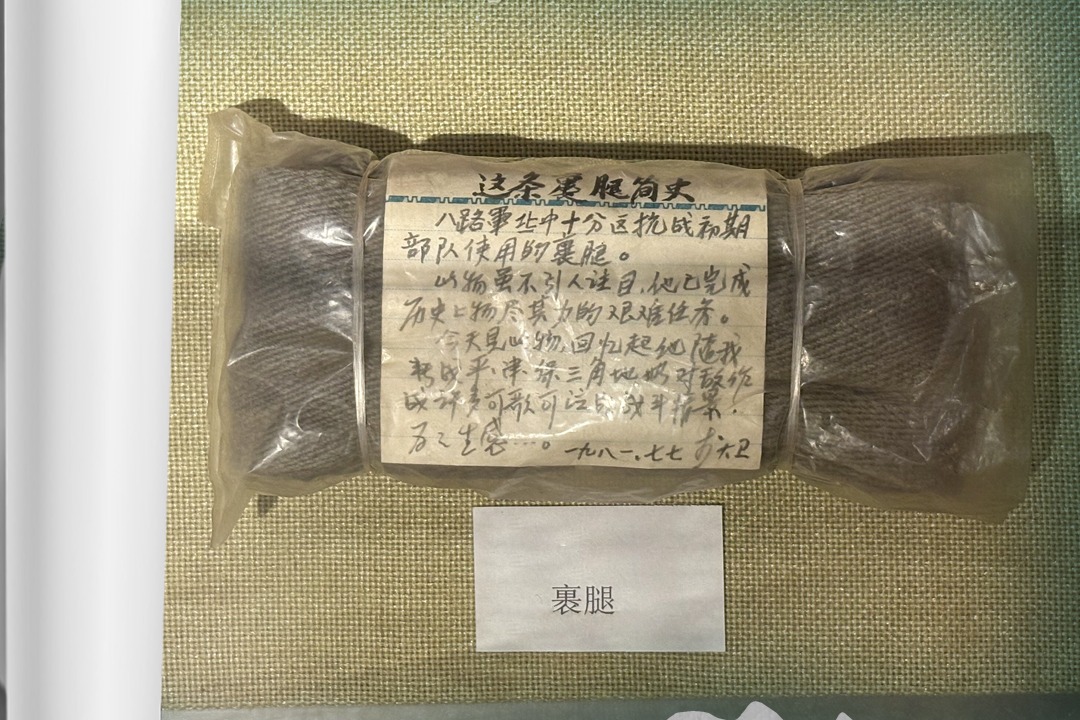 这条裹腿简史
八路軍北中十分区抗战初期
部队使用的裹腿。
此物虽不引人注目，他已完成
历史上物尽其力的艰难任务。
今天见此物，回忆起他随我
转战平、津、保三角地带对敌作
战许多可歌可泣的战斗情景，
为之生感…。一九八一.七七 大卫
裹腿